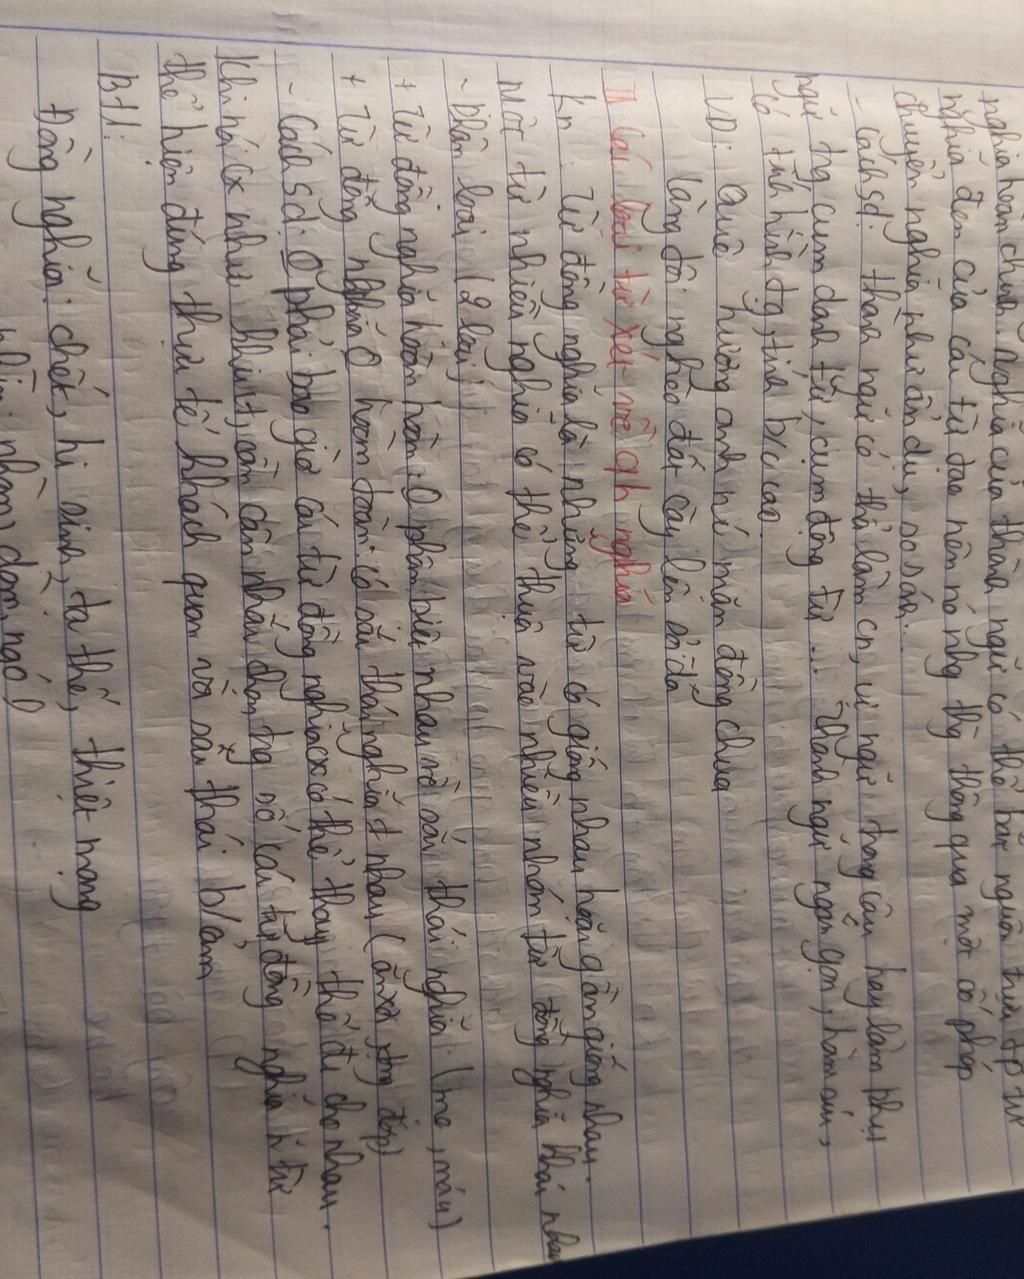 nghĩa hoàn chỉnh nghĩa của thành ngữ có thể bắt nguồn trực tiếp từ
nghĩa đen của các từ tạo nên nó nhg thg thông qua một số phép
chuyển nghĩa như ẩn dụ, so sánh..
- Cách sd: thành ngữ có thể làm cn, vị ngữ trong câu hay làm phụ
ngữ trg cụm danh từ, cụm động từ ... Thành ngữ ngắn gọn, hàm súc,
có tính hình tg, tính b/c cao
VD: Quê hương anh nước mặn đồng chua
Làng tôi nghèo đất cày lên sỏi đá
II Các loại từ xét về qh nghĩa
Kn Từ đồng nghĩa là những từ có giống nhau hoặc gần giống nhau.
Một từ nhiều nghĩa có thể thuộc vào nhiều nhóm từ đồng nghĩa khác nhau
- Phân loại (2 loại)
+ Từ đồng nghĩa hoàn toàn: 0 phân biệt nhau về sắc thái nghĩa (mẹ, má)
+ Từ đồng nghĩa 0 hoàn toàn: có sắc thái nghĩa ≠ nhau
- Cách sd: 0 phải bao giờ các từ đồng nghĩa cx có thể thay thế đc cho nhau.
Khi nói cx như khi viết, cần cân nhắc chọn trg số các từ đồng nghĩa từ
thể hiện đúng thực tế khách quan và sắc thái b/cảm
BT:
Đồng nghĩa: chết, hi sinh, tạ thế, thiệt mạng
nhìn, nhòm, dòm, ngó